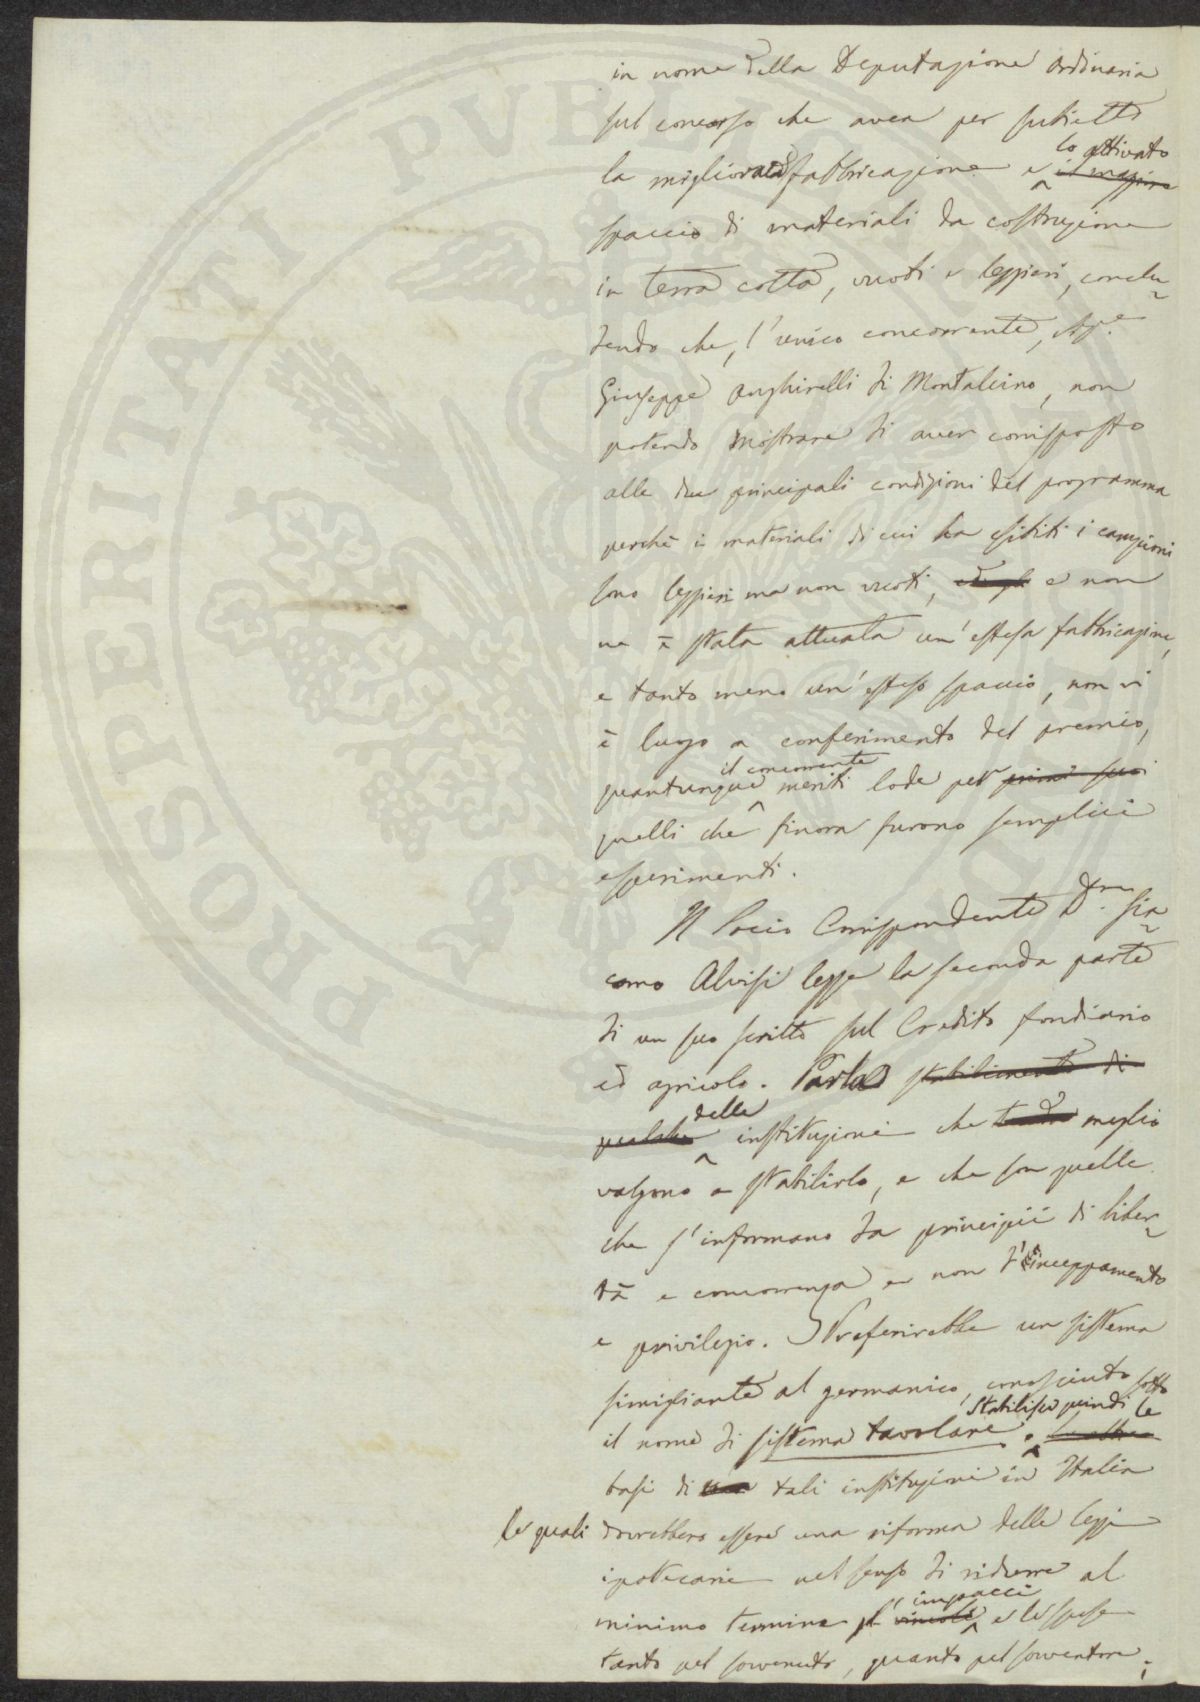 in nome della Deputazione ordinaria
sul concorso che avea per subietto
la migliorata fabbricazione e lo attivato
spaccio di materiali da costruzione
in terra cotta, vuoti e leggieri, conclu-
dendo che, l'unico concorrente,
Giuseppe Anghirelli di Montalcino, non
potendo mostrare di aver corrisposto
alle due principali condizioni del programma
perchè i materiali di cui ha esibiti i campioni
sono leggieri ma non vuoti, e non
ne è stata attuata un'estesa fabbricazione,
e tanto meno un'esteso spaccio, non vi
è luogo a conferimento del premio,
quantunque il concorrente meriti lode per primi suoi
quelli che finora furono semplici
esperimenti.
Il Socio Corrispondente Dre. Gia-
como Alvisi legge la seconda parte
di un suo scritto sul Credito fondiario
ed agricolo. Parla stabilimento di
qualche delle instituzioni che meglio
valgono a stabilirlo, e che son quelle
che s'informano da principii di liber-
tà e concorrenza e non d'inceppamento
e privilegio. Preferirebbe un sistema
simigliante al germanico, conosciuto sotto
il nome di sistema tavolare. Stabilisce quindi le
basi di tali instituzioni in Italia
le quali dovrebbero essere una riforma delle leggi
ipotecarie nel senso di ridurre al
minimo termine gl' vincoli impacci e le spese
tanto pel sovvenuto, quanto pel sovventore;
PROSPERITATI PVBLICAE